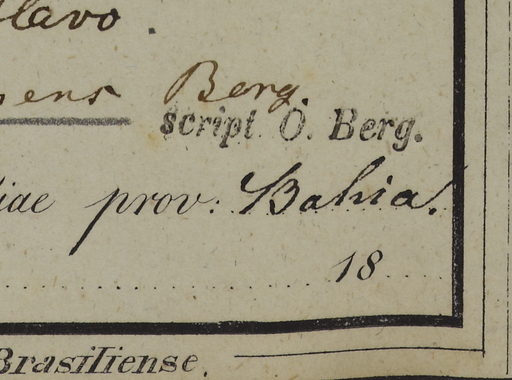 flavo.
Berg.
script O. Berg.
iae prov: Bahia.
18
Brasiliense.